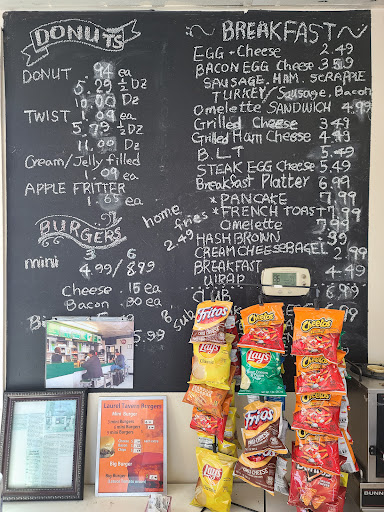 DONUTS
DONUT .94 ea
5.29 ½ Dz
10.00 Dz
TWIST 1.09 ea
5.79 ½ Dz
11.09 Dz
Cream/Jelly filled
1.09 ea
APPLE FRITTER
1.65 ea
BURGERS
3 6
mini 4.99/8.99
Cheese .15 ea
Bacon .30 ea
5.99
home
fries
2.49
Sub
BREAKFAST
EGG + Cheese 2.49
BACON EGG Cheese 3.59
SAUSAGE, HAM, SCRAPPLE
TURKEY/Sausage, Bacon
Omelette SANDWICH 4.99
Grilled Cheese 3.49
Grilled Ham Cheese 4.99
B.L.T 5.49
STEAK EGG Cheese 5.49
Breakfast Platter 6.99
*PANCAKE 7.99
*FRENCH TOAST 7.99
Omelette 7.99
HASHBROWN .99
CREAM CHEESE BAGEL 2.99
BREAKFAST 4.49
WRAP
CLUB
Laurel Tavern Burgers
Mini Burger
Big Burger
Fritos
Lay's
Lay's
Fritos
Lay's
Cheetos
Lay's
Fritos
CHILI CHEESE
Cheetos
Cheetos
Doritos
BUNN